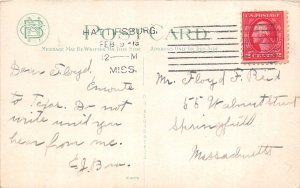 HATTIESBURG,
FEB 9
12—M
MISS.
POST CARD
MESSAGE MAY BE WRITTEN ON THIS SIDE
ADDRESS ONLY ON THIS SIDE
Dear Floyd,
Enroute
to Texas. Do not
write until you
hear from me.
Mr. Floyd F. Reid
55 Walnut street
Springfield
Massachusetts